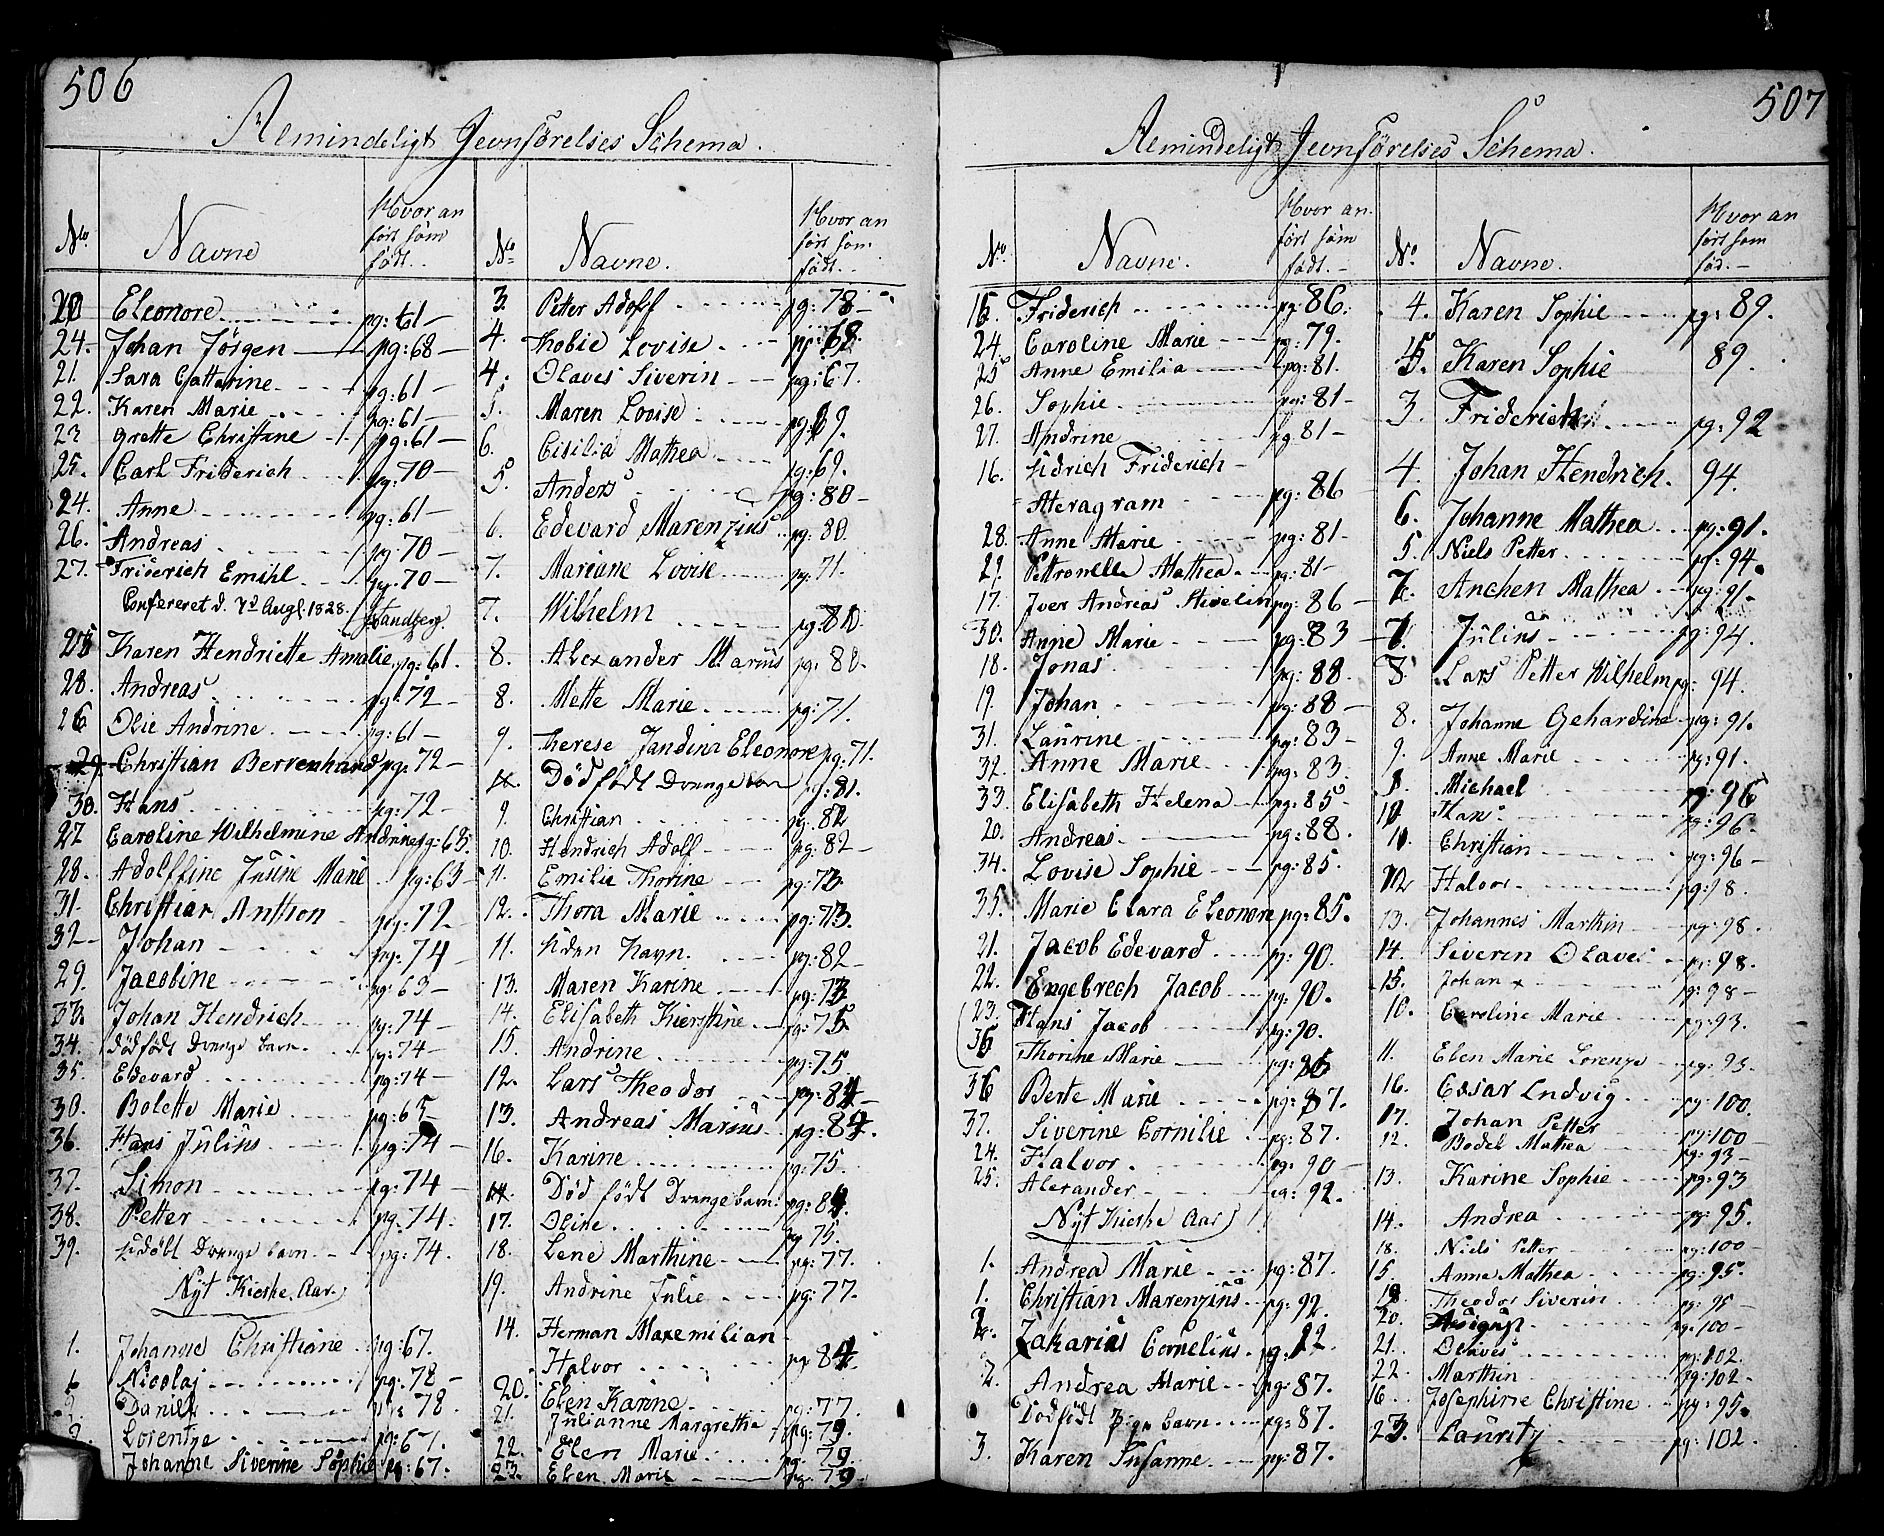 506
Almindeligt Jevnførelses Schema.
No. Navne Hvor an
ført som
født.
20 Eleonore pg: 61
24. Johan Jørgen pg: 68
21. Sara Cattarine pg: 61
22. Karen Marie pg: 61
23 Grette Christane pg: 61
25. Carl Friderich pg: 70
24. Anne pg: 61
26. Andreas pg: 70
27. Friderich Emihl pg: 70
Confereret d. 7d Augl. 1828. Sandberg
25 Karen Hendriette Amalie pg: 61.
28. Andreas pg: 72
26 Olie Andrine pg: 61
29. Christian Bervenhard pg: 72
30. Hans pg: 72
27 Caroline Wilhelmine Andrine pg: 63.
28. Adolffine Jusine Marie pg: 63
31. Christian Anthon pg: 72
32 Johan pg: 74
29. Jacobine pg: 63
33. Johan Hendrich pg: 74
34. dødfødt Drenge barn pg: 74
35. Edevard pg: 74
30. Bolette Marie pg: 65
36. Hans Julius pg: 74
37. Simon pg: 74
38. Petter pg: 74.
39. Udøbt Drenge barn pg: 74.
Nyt Kirke Aar.
1. Johanne Christiane pg: 67.
1 Nicolaj pg: 78
2 Daniel 78
2. Lorentze pg: 67.
Johanne Siverine Sophie pg: 67.
No Navne. Hvor an
ført som
født.
3. Petter Adolf pg: 78
4. Thobie Lovise pg: 68.
4. Olaves Siverin pg: 67.
5. Maren Lovise pg: 69.
6. Cisilia Mathea pg: 69.
5. Anders pg: 80
6. Edevard Marenzius pg: 80.
7. Mariane Lovise pg: 71.
7. Wilhelm pg: 80
8. Alexander Marius pg: 80.
8. Mette Marie pg: 71.
9. Therese Jandina Eleonore pg: 71.
Død født Drenge barn pg: 81.
9. Christian pg: 82
10. Hendrich Adolf pg: 82
11. Emilie Thorine pg: 73.
12. Thora Marie pg: 73.
11. Uden Navn. pg: 82
13. Maren Karine pg: 73
14. Elisabeth Kierstine pg: 75
15. Andrine pg: 75
12. Lars Theodor pg: 84
13. Andreas Marius pg: 84.
16. Karine pg: 75.
14. Død født Drenge barn pg: 84.
17. Oline pg 75.
18. Lene Marthine pg: 77.
19. Andrine Julie pg: 77.
14. Herman Maxemilian
Halvor pg 84.
20. Elen Karine pg: 77
21. Julianne Margrethe pg: 79.
22. Elen Marie pg: 79
23. Elen Marie pg: 79
507
Almindeligt Jevnførelses Schema.
No. Navne. Hvor an
ført som
født.
15. Friderich pg: 86.
24. Caroline Marie pg: 79.
25 Anne Emilia pg: 81.
26. Sophie pg: 81
27. Andrine pg 81
16. Didrich Friderich
Meragram pg: 86
28. Anne Marie pg: 81
29. Pettronelle Mathea pg: 81
17. Iver Andreas pg: 86
30. Anne Marie pg: 83
18. Jonas pg: 88.
19. Johan pg: 88
31. Laurine pg: 83
32. Anne Marie pg: 83.
33. Elisabeth Helena pg: 85
20. Andreas pg: 88.
34. Lovise Sophie pg: 85.
35. Marie Clara Eleonore pg: 85.
21. Jacob Edevard pg: 90.
22. Engebrech Jacob pg: 90.
23. Hans Jacob pg: 90.
35 Thorine Marie pg: 85
36 Berte Marie pg: 87.
37. Siverine Cornilie pg: 87.
24. Halvor. pg: 90
25. Alexander pg: 92.
Nyt Kirke Aar
1. Andrea Marie pg: 87.
1. Christian Marenzius pg: 92.
2. Zakarias Cornelius pg: 92.
2. Andrea Marie pg: 87.
Dødfødt Pige barn pg: 87.
3. Karen Susanne pg: 87.
No. Navne. Hvor an
ført som
fød.
4. Karen Sophie pg: 89.
5. Karen Sophie 89
3. Friderich pg: 92
4. Johan Hendrich. 94.
6. Johanne Mathea pg: 91.
5. Niels Petter pg: 94.
7. Anchen Mathea pg: 91
6. Julius pg: 94.
7. Lars Petter Wilhelm pg: 94.
8. Johanne Gehardine pg: 91.
9. Anne Marie pg: 91.
8. Michael pg: 96
10 Hans pg: 96.
11. Christian pg: 96
12 Halvor pg: 98.
13. Johannes Marthin pg: 98.
14. Siverin Olaves pg: 98.
15. Johan pg: 98
10. Caroline Marie pg: 93.
11. Elen Marie Lorenze pg: 93.
16. Cesar Ludvig pg: 100.
17. Johan Petter pg: 100
12. Bodel Mathea pg: 93
13. Karine Sophie pg: 93
14. Andrea pg: 95.
18. Niels Petter pg: 100
15. Anne Mathea pg: 95.
19. Theodor Siverin pg: 95
20. August pg: 100
21. Olaves pg: 102.
22. Marthin pg: 102
16. Josephine Christine pg: 95.
23. Lauritz pg: 102.